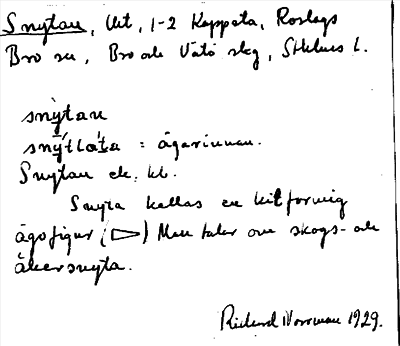 Snytan, Urt, 1-2 Kappata, Roslags
Bro sn, Bro och Vätö skg, Sthlms l.
snỳtan
snýtlåta = ägarinnan.
Snytan ek. kl.
Snyta kallas en kilformig
ägofigur (▷) Man talar om skogs- och
åkersnyta.
Rickard Norrman 1929.